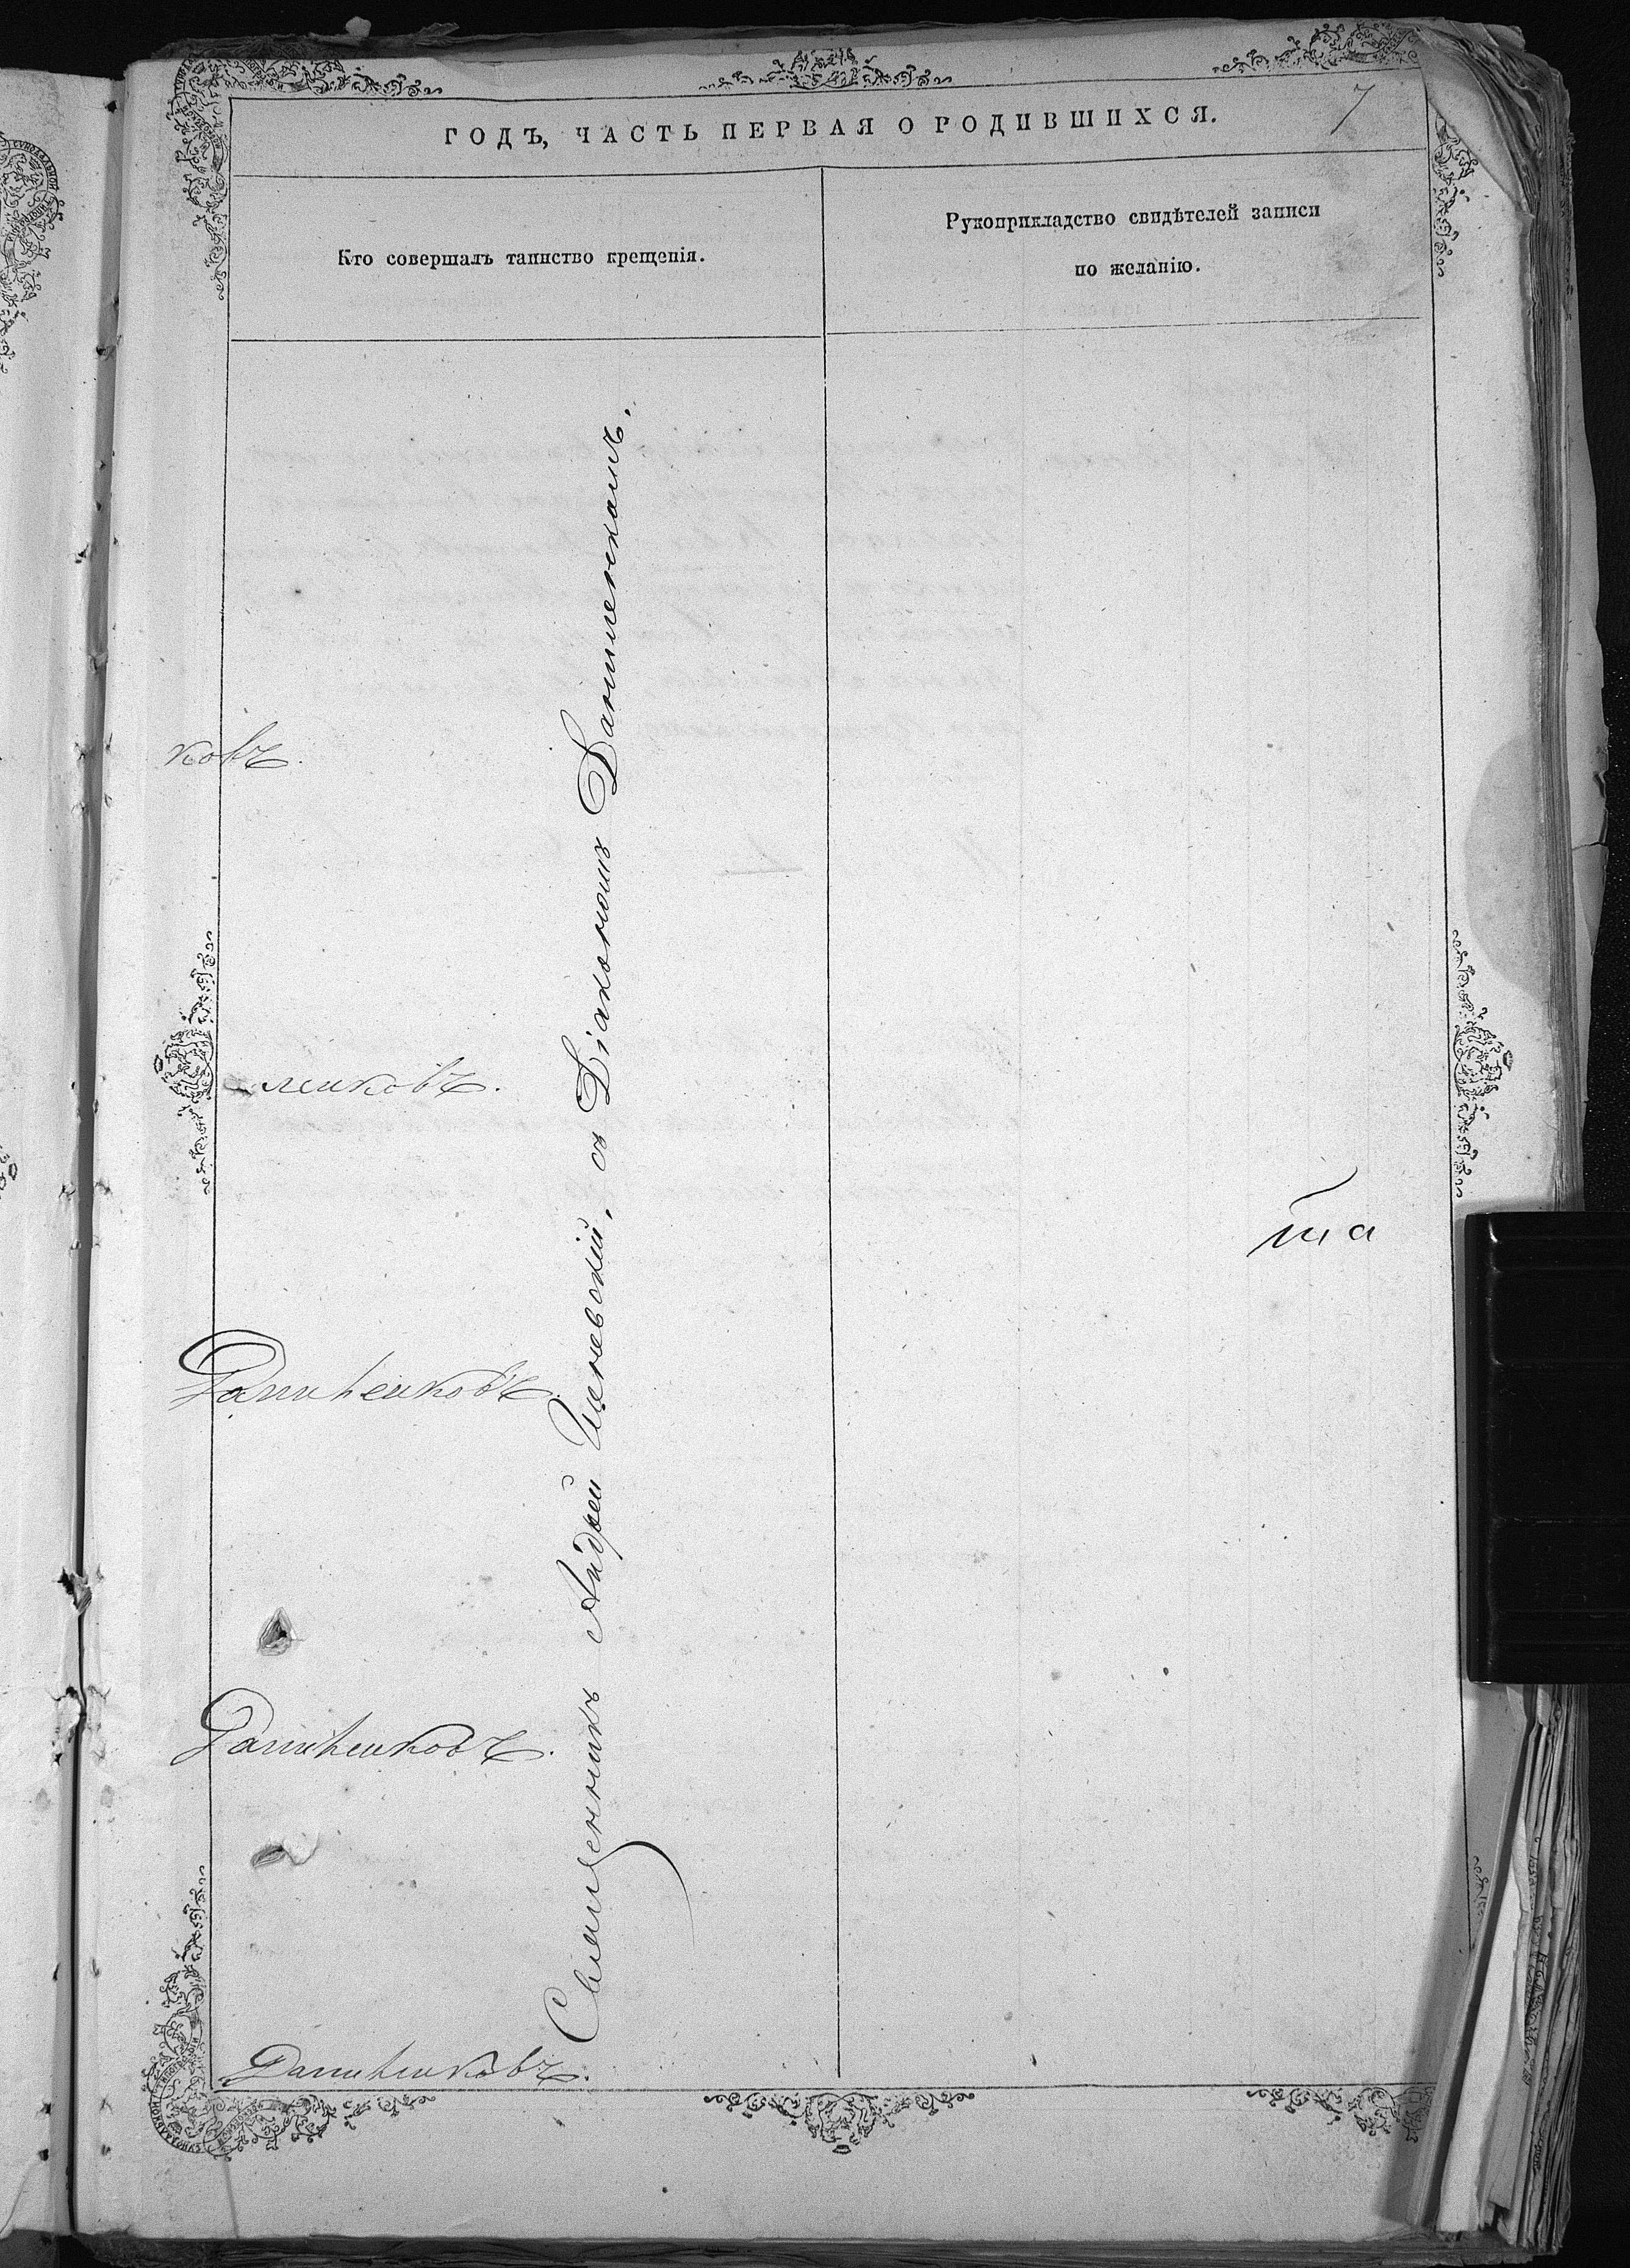 ГОДЪ, ЧАСТЬ ПЕРВАЯ О РОДИВШИХСЯ.
7
Кто совершалъ таинство крещенія.
Рукоприкладство свидѣтелей записи
по желанію.
ковъ.
ленковъ.
Даниленковъ.
Даниленковъ.
Даниленковъ.
Священникъ Андрей съ Діакономъ Даниленкомъ.
та